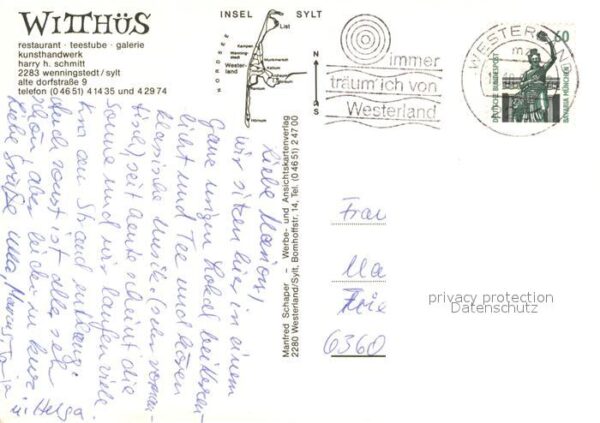 WITTHÜS
restaurant · teestube · galerie
kunsthandwerk
harry h. schmitt
2283 wenningstedt / sylt
alte dorfstraße 9
telefon (0 46 51) 4 14 35 und 4 29 74
INSEL SYLT
NORDSEE
List
Kampen
Westerland
Keitum
Hörnum
N
S
immer
träum' ich von
Westerland
WESTERLAND
60
DEUTSCHE BUNDESPOST
BAVARIA MÜNCHEN
Manfred Schaper – Werbe- und Ansichtskartenverlag
2280 Westerland/Sylt, Bomhoffstr. 14, Tel. (0 46 51) 2 47 00
Liebe
wir sitzen hier in einem
ganz urigen Lokal bei Kerzen-
licht und Tee und hören
klassische Musik (sehr roman-
tisch) seit heute scheint die
Sonne und wir laufen viele
km am Strand entlang.
Auch sonst ist alles sehr
schön, aber leider zu kurz
Liebe Grüße
u. Helga.
Frau
Ma
6360
privacy protection
Datenschutz